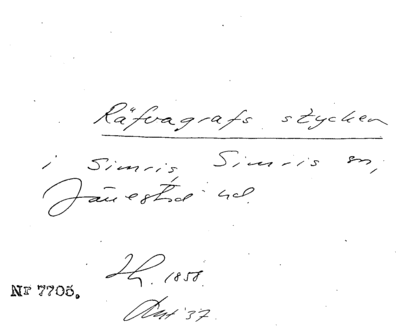 Räfvagrafs stycken
i Simris, Simris sn,
Järrestad hd.
1858.
Nr 7705.
Akt 37.